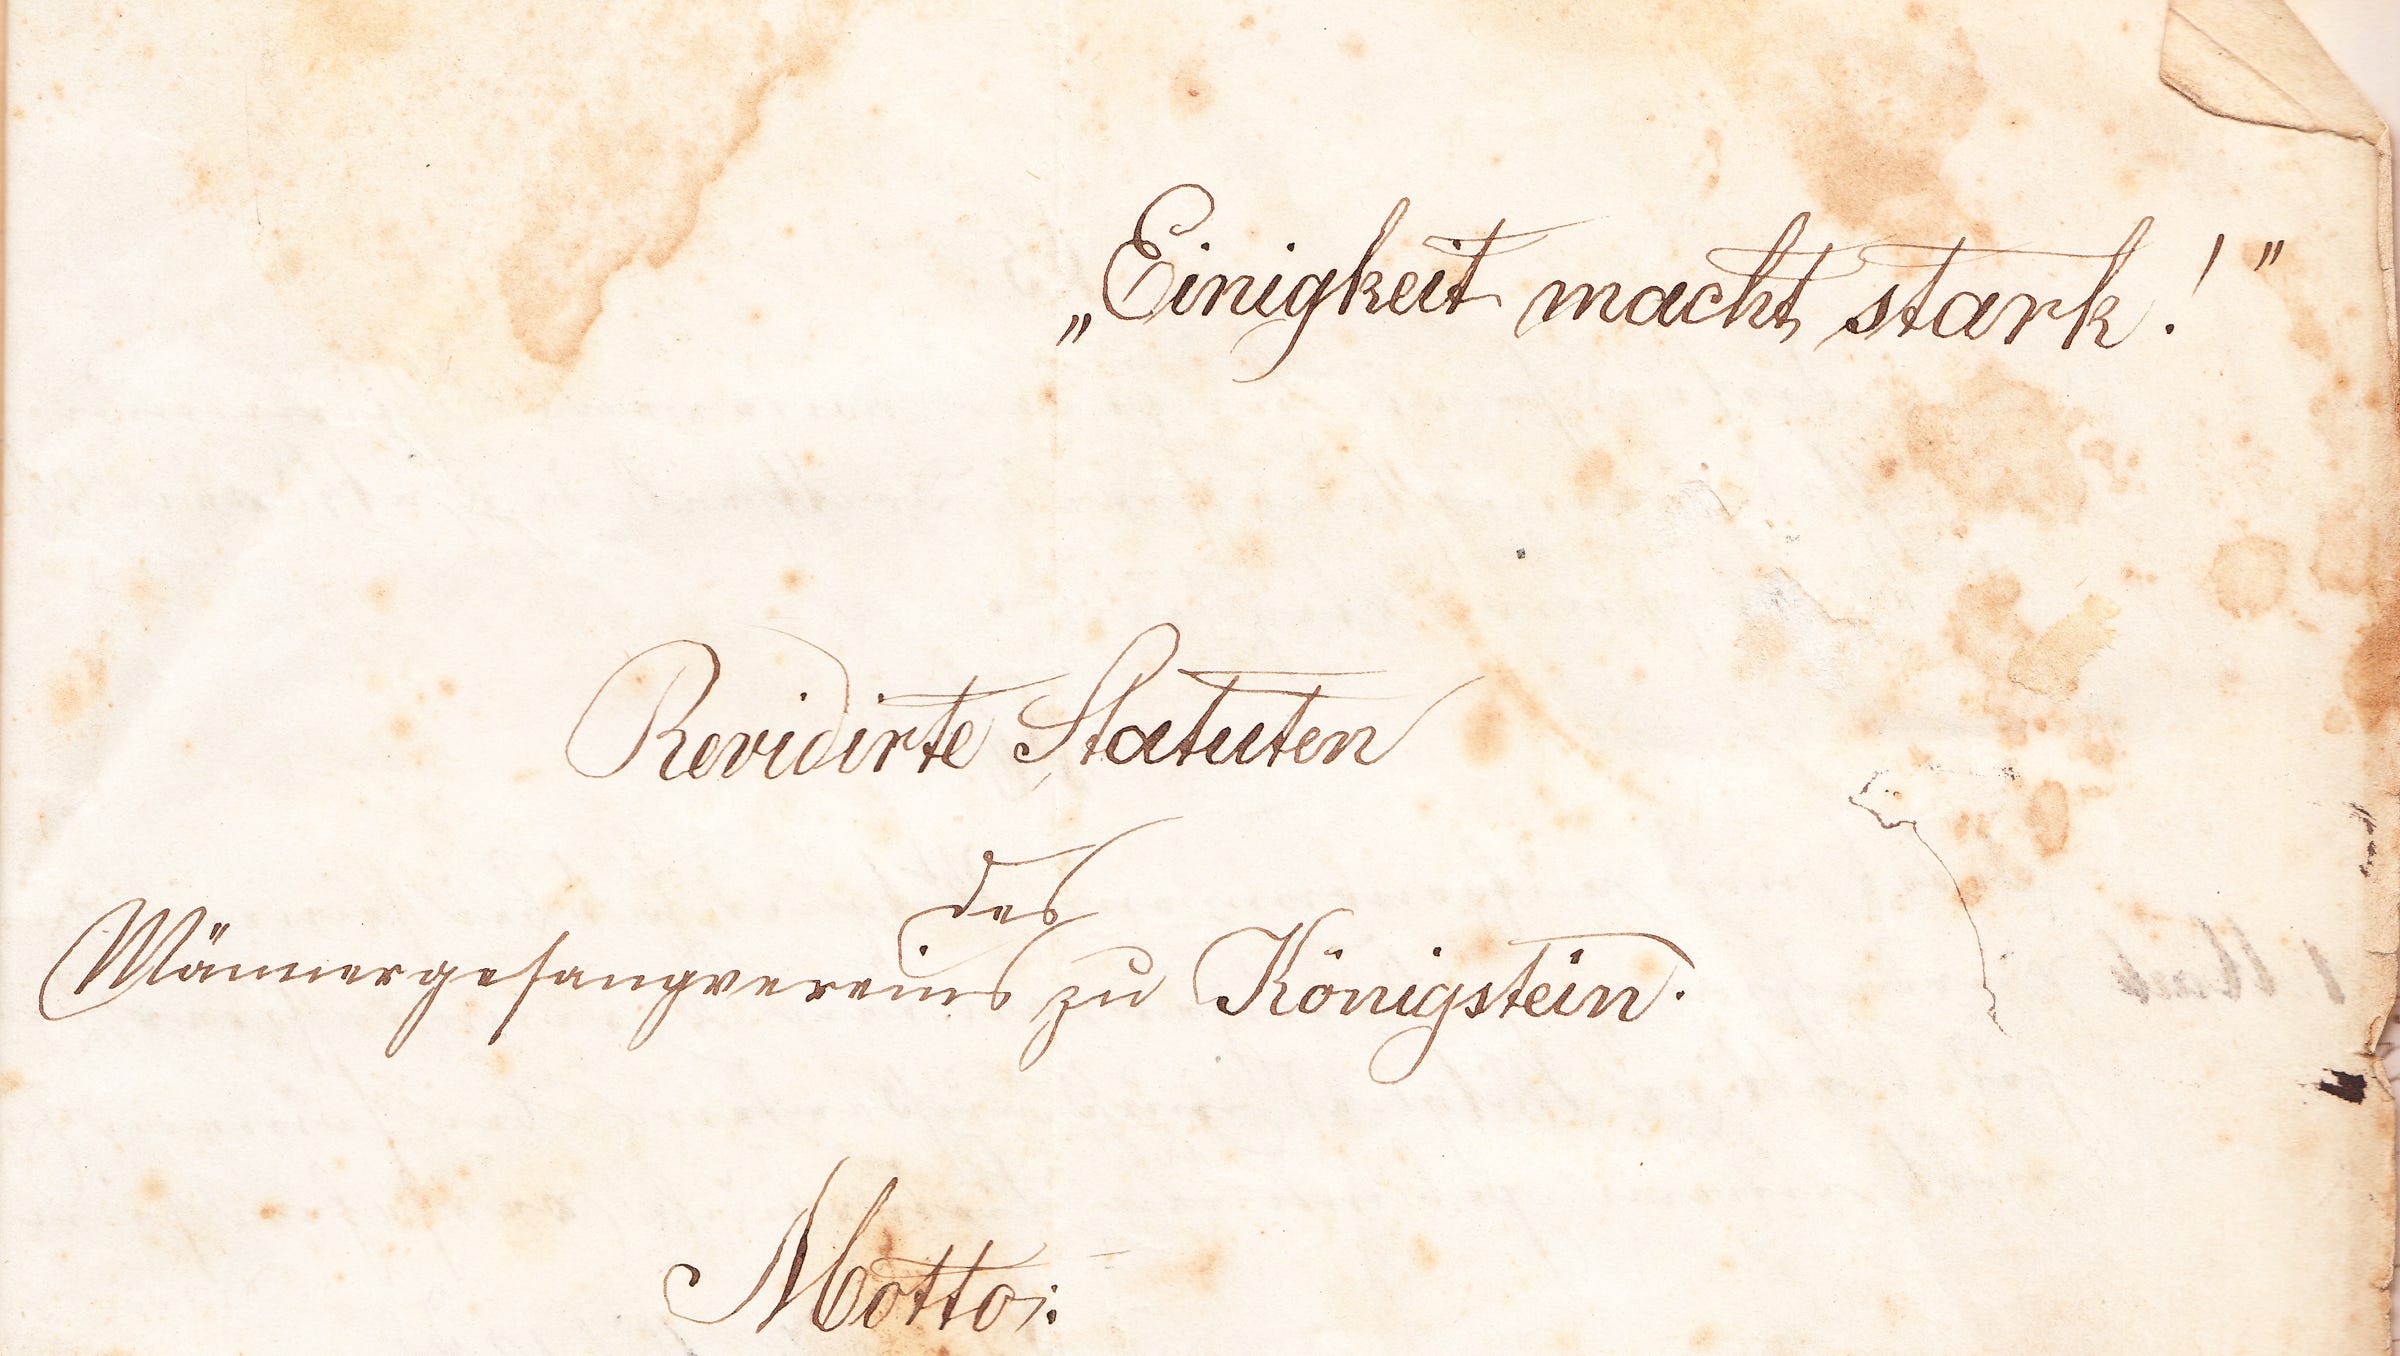 „Einigkeit macht stark!"
Revidirte Statuten
des
Männergesangvereins zu Königstein.
Motto: